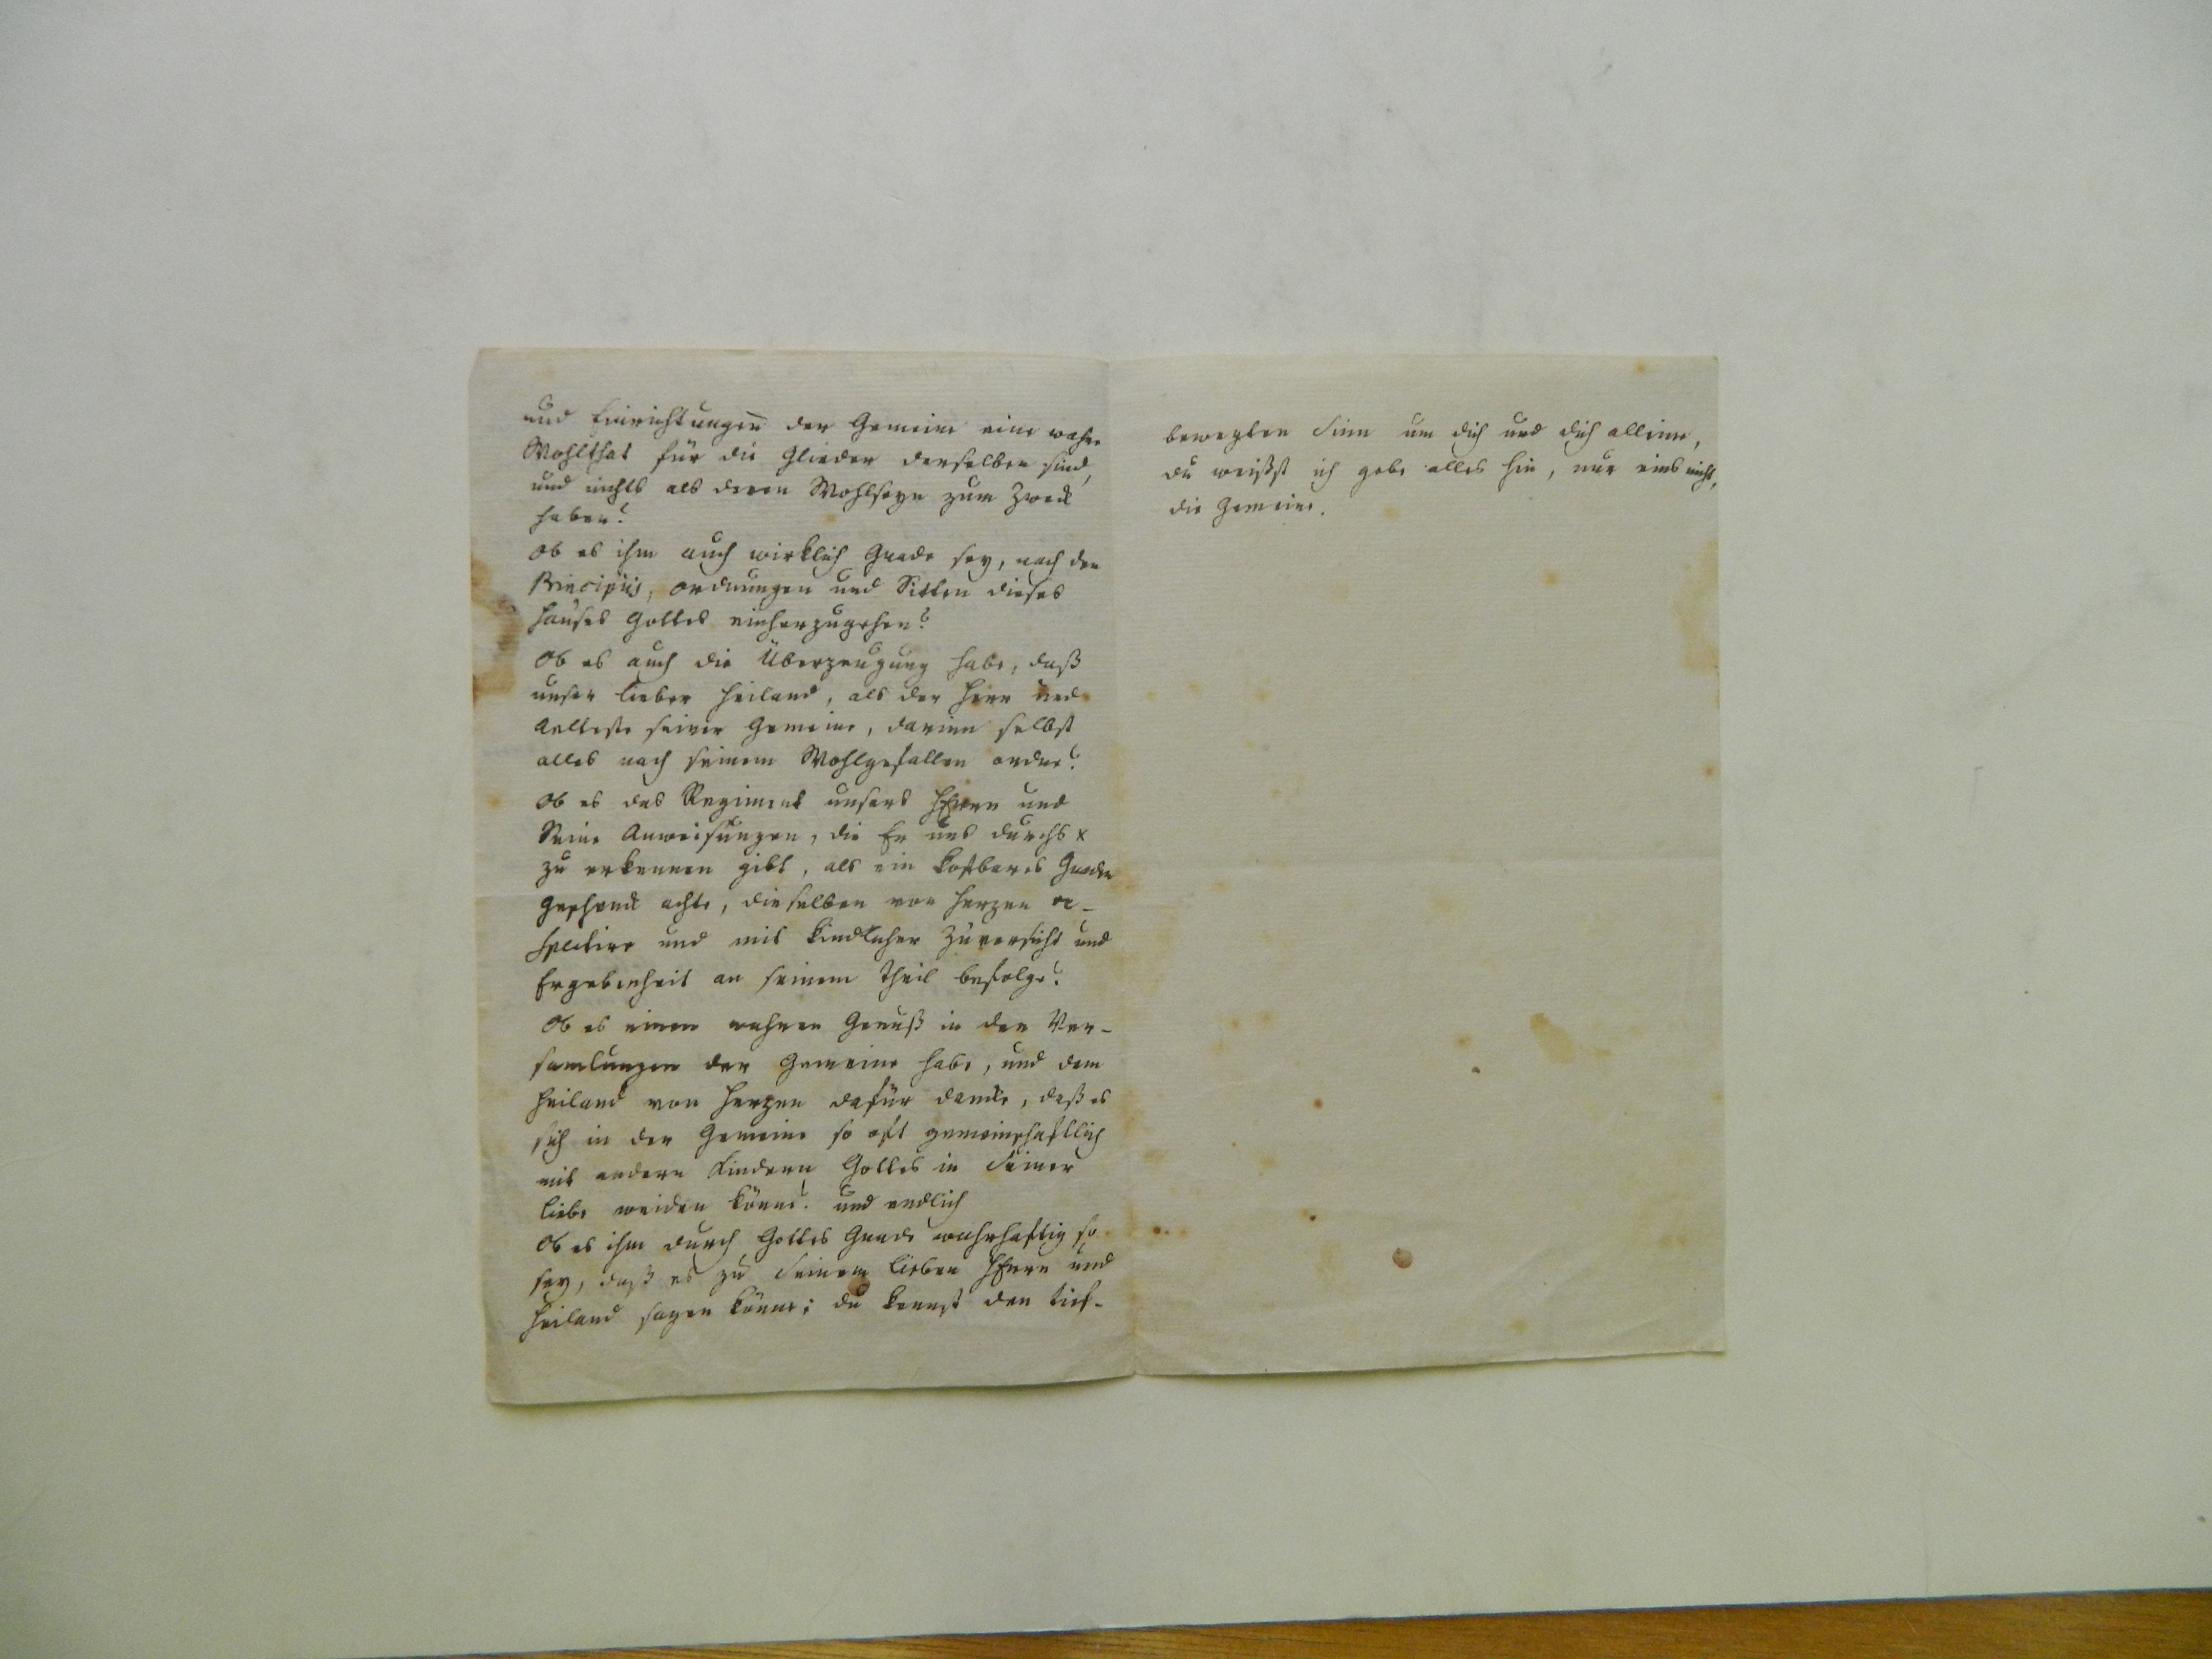 und Einrichtungen der Gemeine eine wahre
Wohlthat für die Glieder derselben sind,
und nichts als deren Wohlseyn zum Zweck
haben?
Ob es ihm auch wirklich Gnade sey, nach den
Principiis, Ordnungen und Sitten dieses
Hauses Gottes einherzugehen?
Ob es auch die Überzeugung habe, daß
unser lieber Heiland, als der Herr und
Aelteste seiner Gemeine, darinn selbst
alles nach seinem Wohlgefallen ordne?
Ob es das Regiment unsers HErrn und
Seine Anweisungen, die Er uns durchs x
zu erkennen gibt, als ein kostbares Gnaden
Geschenk achte, dieselben von Herzen re-
spectire und mit kindlicher Zuversicht und
Ergebenheit an seinem Theil befolge?
Ob es einen wahren Genuß in den Ver-
samlungen der Gemeine habe, und dem
Heiland von Herzen dafür danke, daß es
sich in der Gemeine so oft gemeinschaftlich
mit andern Kindern Gottes in Seiner
Liebe weiden könne? und endlich
Ob es ihm durch Gottes Gnade wahrhaftig so
sey, daß es zu Seinem lieben HErrn und
Heiland sagen könne: du kennst den tief-
bewegten Sinn um dich und dich alleine,
du weißst ich gebe alles hin, nur eins nicht,
die Gemeine.